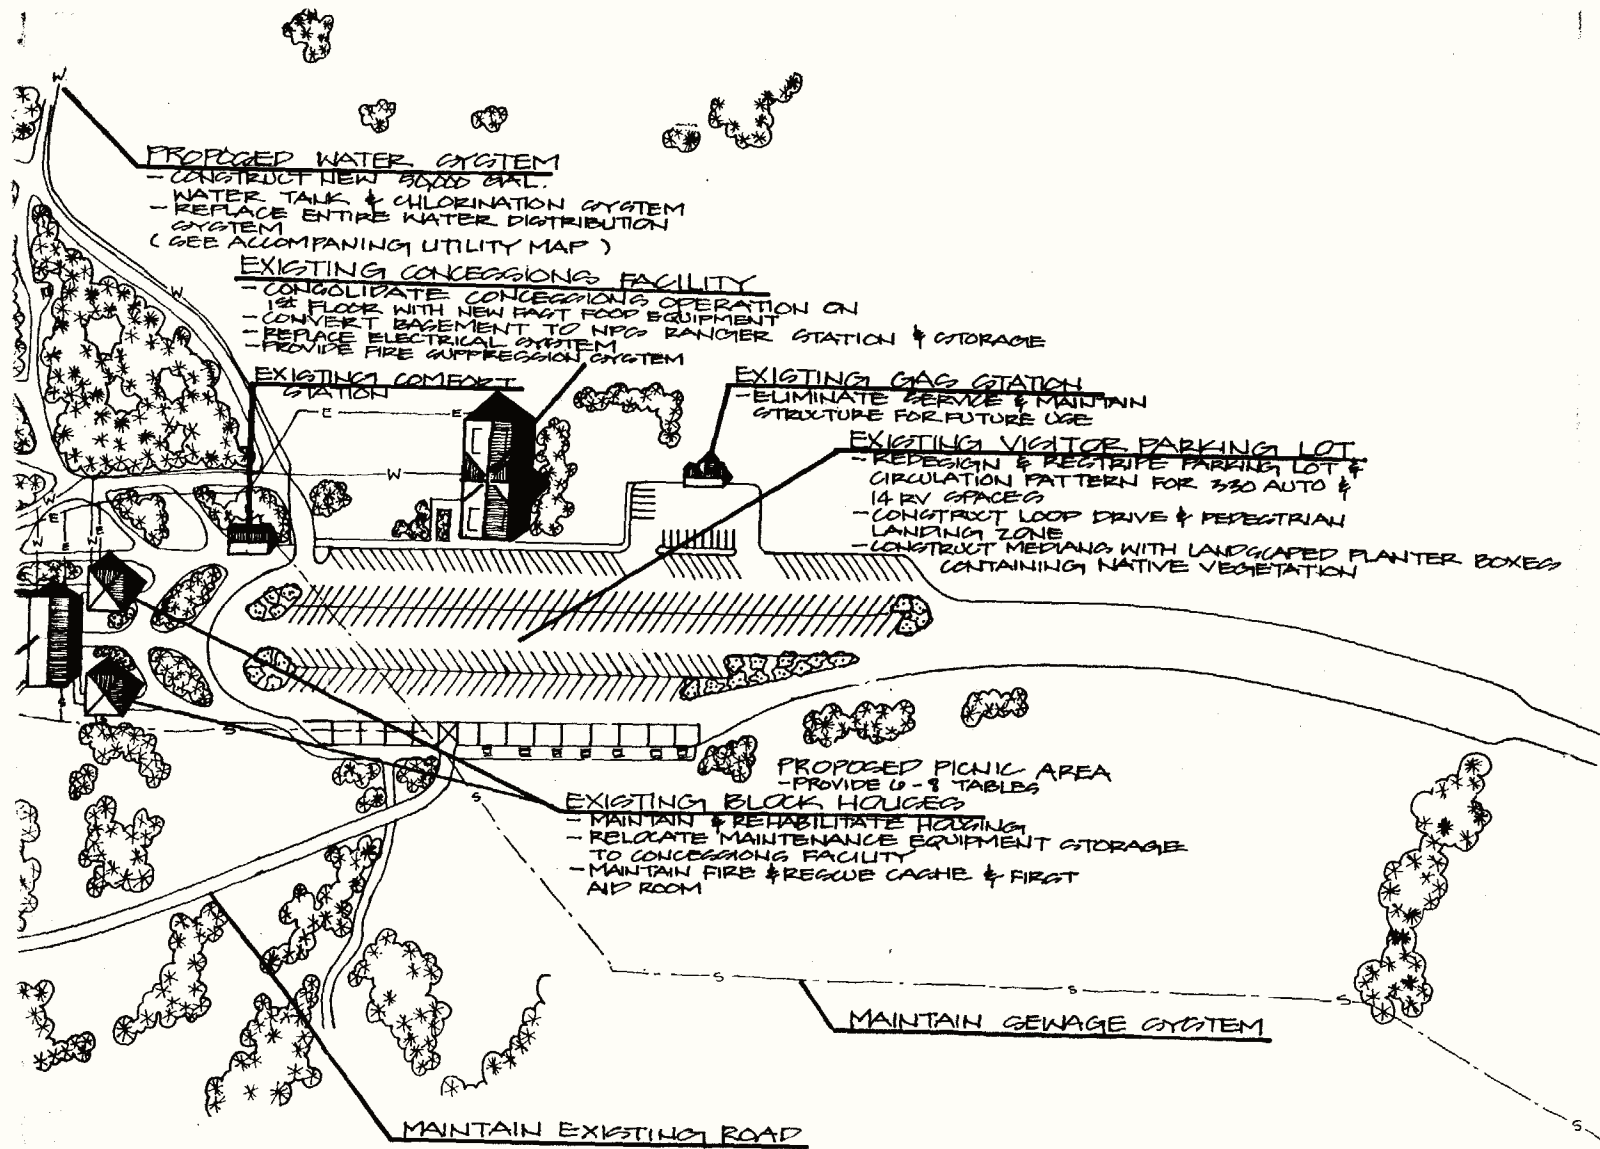 W
PROPOSED WATER SYSTEM
- CONSTRUCT NEW 50,000 GAL.
WATER TANK & CHLORINATION SYSTEM
- REPLACE ENTIRE WATER DISTRIBUTION
SYSTEM
( SEE ACCOMPANING UTILITY MAP )
EXISTING CONCESSIONS FACILITY
- CONSOLIDATE CONCESSIONS OPERATION ON
1st FLOOR WITH NEW FAST FOOD EQUIPMENT
- CONVERT BASEMENT TO NPS RANGER STATION & STORAGE
- REPLACE ELECTRICAL SYSTEM
- PROVIDE FIRE SUPPRESSION SYSTEM
W
EXISTING COMFORT
STATION
E
E
EXISTING GAS STATION
- ELIMINATE SERVICE & MAINTAIN
STRUCTURE FOR FUTURE USE
EXISTING VISITOR PARKING LOT
- REDESIGN & RESTRIPE PARKING LOT &
CIRCULATION PATTERN FOR 330 AUTO &
14 RV SPACES
- CONSTRUCT LOOP DRIVE & PEDESTRIAN
LANDING ZONE
- CONSTRUCT MEDIANS WITH LANDSCAPED PLANTER BOXES
CONTAINING NATIVE VEGETATION
W
W
E
W
E
W
S
S
PROPOSED PICNIC AREA
- PROVIDE 6 - 8 TABLES
S
EXISTING BLOCK HOUSES
- MAINTAIN & REHABILITATE HOUSING
- RELOCATE MAINTENANCE EQUIPMENT STORAGE
TO CONCESSIONS FACILITY
- MAINTAIN FIRE & RESCUE CACHE & FIRST
AID ROOM
S
S
S
MAINTAIN SEWAGE SYSTEM
MAINTAIN EXISTING ROAD
S